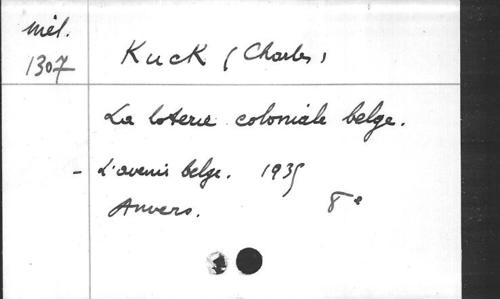 Mél.
1307
Kuck (Charles)
La loterie coloniale belge.
- L'avenir belge. 1935
Anvers. 8°